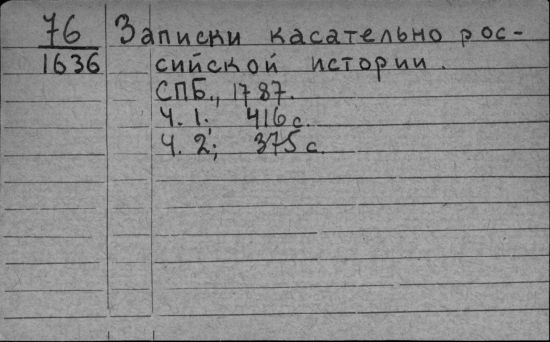 76 Записки касательно рос-
1636 сийской истории.
СПБ., 1787.
Ч. 1; 416 с.
Ч. 2; 375 с.